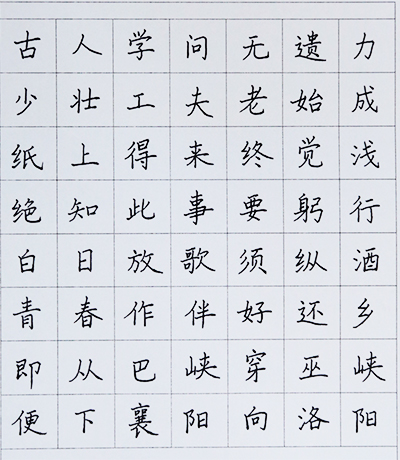 古人学问无遗力
少壮工夫老始成
纸上得来终觉浅
绝知此事要躬行
白日放歌须纵酒
青春作伴好还乡
即从巴峡穿巫峡
便下襄阳向洛阳